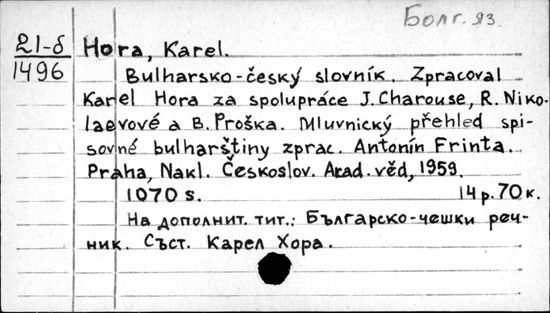 Болг. яз.
21-б
1496
Hora, Karel.
Bulharsko-český slovník. Zpracoval
Karel Hora za spolupráce J. Charouse, R. Niko-
laevové a B. Proška. Mluvnický přehled spi-
sovné bulharštiny zprac. Antonín Frinta.
Praha, Nakl. Českoslov. Akad. věd, 1959.
1070 s. 14 р. 70 к.
На дополнит. тит.: Българско-чешки реч-
ник. Съст. Карел Хора.